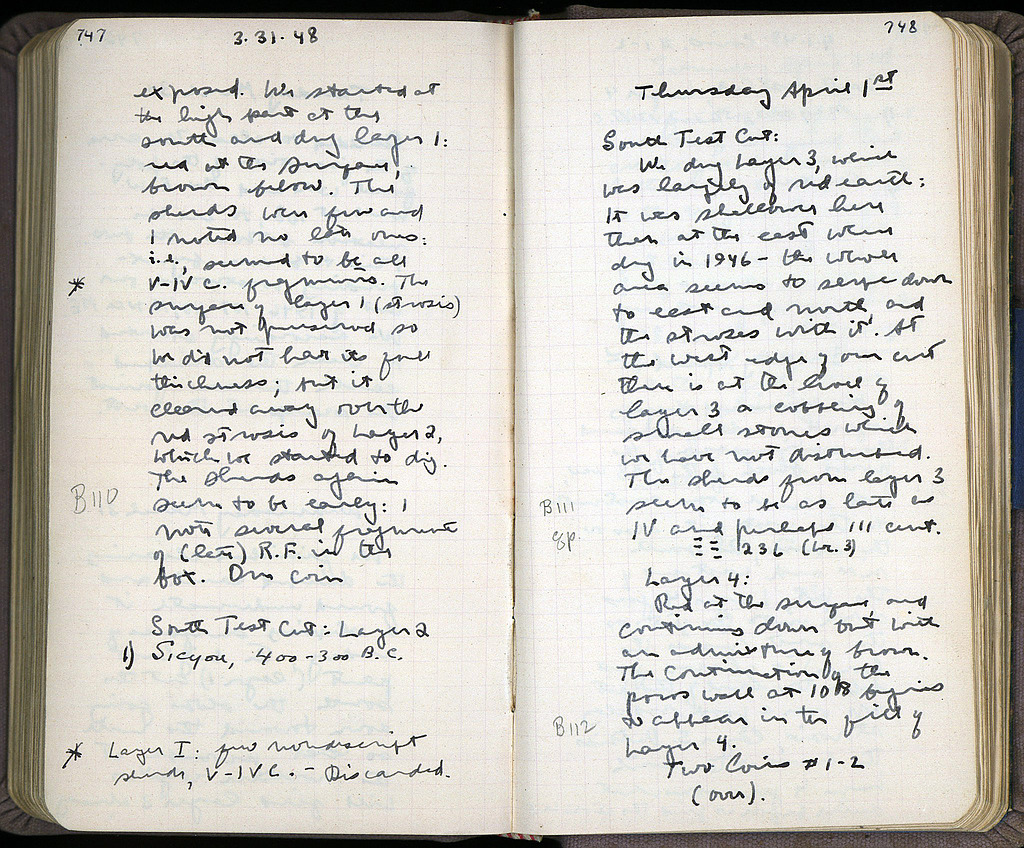 747
3·31·48
exposed. We started at
the high part at the
south and dug layer 1:
red at the surface,
brown below. The
sherds were few and
I noted no late ones:
i.e., seemed to be all
* V-IV c. fragments. The
surface of layer 1 (strosis)
was not preserved so
we did not have its full
thickness; but it
cleared away over the
red strosis of Layer 2,
which we started to dig.
The sherds again
B110 seem to be early: I
note several fragments
of (late) R.F. in the
box. One coin
South Test Cut: Layer 2
1) Sicyon, 400-300 B.C.
* Layer I: few nondescript
sherds, V-IV C. - Discarded.
748
Thursday April 1st
South Test Cut:
We dug Layer 3, which
was largely of red earth;
It was shallower here
than at the east where
dug in 1946 - the whole
area seems to slope down
to east and north, and
the stroses with it. At
the west edge of our cut
there is at the level of
layer 3 a cobbling of
small stones which
we have not disturbed.
The sherds from layer 3
B111 seem to be as late as
gp. IV and perhaps III cent.
236 (Lr. 3)
Layer 4:
Red at the surface, and
continuing down but with
an admixture of brown.
The continuation of the
poros wall at 10 B begins
B112 to appear in the fill of
Layer 4.
Two Coins #1-2
(over).